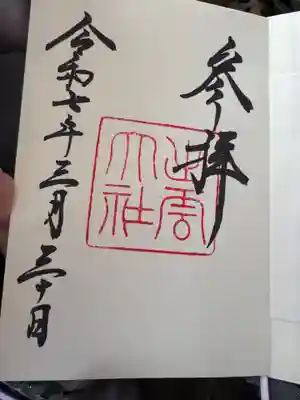 参拝
出雲
大社
令和七年三月三十日